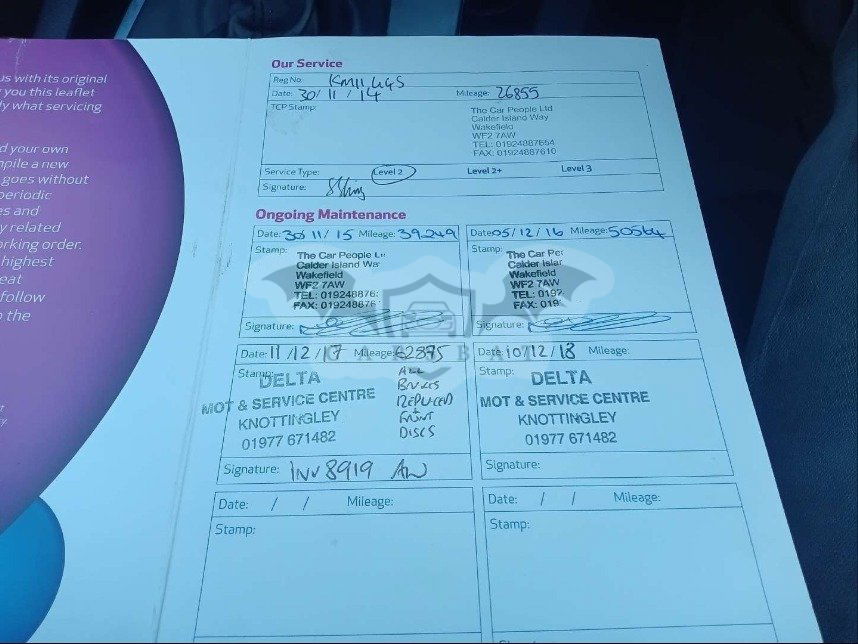 us with its original
you this leaflet
y what servicing
d your own
mpile a new
goes without
periodic
es and
y related
orking order.
highest
eat
follow
the
Our Service
Reg No: KM11 GGS
Date: 30/11/14 Mileage: 26855
TCP Stamp:
The Car People Ltd
Calder Island Way
Wakefield
WF2 7AW
TEL: 01924887654
FAX: 01924887610
Service Type: Level 2 Level 2+ Level 3
Signature:
Ongoing Maintenance
Date: 30/11/15 Mileage: 39249
Stamp:
The Car People L
Calder Island Wa
Wakefield
WF2 7AW
TEL: 019248876
FAX: 019248876
Signature:
Date: 05/12/16 Mileage: 50564
Stamp:
The Car Pe
Calder Islar
Wakefield
WF2 7AW
TEL: 0192
FAX: 019
Signature:
CARBAT
Date: 11/12/17 Mileage: 62875
Stamp:
DELTA
MOT & SERVICE CENTRE
KNOTTINGLEY
01977 671482
ALL
BRAKES
REPLACED
+
FRONT
DISCS
Signature: INV 8919 AW
Date: 10/12/18 Mileage:
Stamp:
DELTA
MOT & SERVICE CENTRE
KNOTTINGLEY
01977 671482
Signature:
Date: / / Mileage:
Stamp:
Date: / / Mileage:
Stamp: